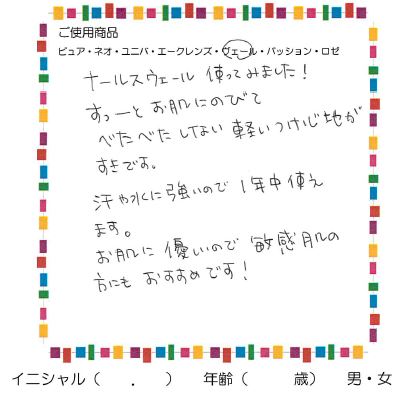 ご使用商品
ピュア・ネオ・ユニバ・エークレンズ・ヴェール・パッション・ロゼ
ナールスヴェール 使ってみました！
すっーと お肌にのびて
べたべた しない 軽いつけ心地が
すきです。
汗や水に強いので 1年中使え
ます。
お肌に 優しいので 敏感肌の
方にも おすすめです！
イニシャル（　．　） 年齢（　　歳） 男・女